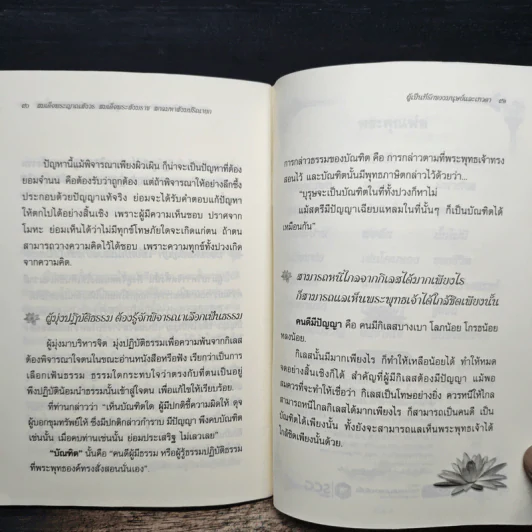 ๓๐ สมเด็จพระญาณสังวร สมเด็จพระสังฆราช สกลมหาสังฆปริณายก
ปัญหานี้แม้พิจารณาเพียงผิวเผิน ก็น่าจะเป็นปัญหาที่ต้อง
ยอมจำนน คือต้องรับว่าถูกต้อง แต่ถ้าพิจารณาให้อย่างลึกซึ้ง
ประกอบด้วยปัญญาแท้จริง ย่อมจะได้รับคำตอบแก้ปัญหา
ให้ตกไปได้อย่างสิ้นเชิง เพราะผู้มีความเห็นชอบ ปราศจาก
โมหะ ย่อมเห็นได้ว่าไม่มีทุกข์โทษภัยใดจะเกิดแก่ตน ถ้าตน
สามารถวางความคิดไว้ได้ชอบ เพราะความทุกข์ทั้งปวงเกิด
จากความคิด.
ผู้มุ่งปฏิบัติธรรม ต้องรู้จักพิจารณาเลือกเฟ้นธรรม
ผู้มุ่งมาบริหารจิต มุ่งปฏิบัติธรรมเพื่อความพ้นจากกิเลส
ต้องพิจารณาใจตนในขณะอ่านหนังสือหรือฟัง เรียกว่าเป็นการ
เลือกเฟ้นธรรม ธรรมใดกระทบใจว่าตรงกับที่ตนเป็นอยู่
พึงปฏิบัติน้อมนำธรรมนั้นเข้าสู่ใจตน เพื่อแก้ไขให้เรียบร้อย.
ที่ท่านกล่าวว่า "เห็นบัณฑิตใด ผู้มีปกติชี้ความผิดให้ ดุจ
ผู้บอกขุมทรัพย์ให้ ซึ่งมีปกติกล่าวกำราบ มีปัญญา พึงคบบัณฑิต
เช่นนั้น เมื่อคบท่านเช่นนั้น ย่อมประเสริฐ ไม่เลวเลย"
"บัณฑิต" นั้นคือ "คนดีผู้มีธรรม หรือผู้รู้ธรรมปฏิบัติธรรม
ที่พระพุทธองค์ทรงสั่งสอนนั่นเอง"
ผู้เป็นที่รักของมนุษย์และเทวดา ๓๑
การกล่าวธรรมของบัณฑิต คือ การกล่าวตามที่พระพุทธเจ้าทรง
สอนไว้ และบัณฑิตนั้นมีพุทธภาษิตกล่าวไว้ด้วยว่า...
"บุรุษจะเป็นบัณฑิตในที่ทั้งปวงก็หาไม่
แม้สตรีมีปัญญาเฉียบแหลมในที่นั้นๆ ก็เป็นบัณฑิตได้
เหมือนกัน"
สามารถหนีไกลจากกิเลสได้มากเพียงไร
ก็สามารถแลเห็นพระพุทธเจ้าได้ใกล้ชิดเพียงนั้น
คนดีมีปัญญา คือ คนมีกิเลสบางเบา โลภน้อย โกรธน้อย
หลงน้อย.
กิเลสนั้นมีมากเพียงไร ก็ทำให้เหลือน้อยได้ ทำให้หมด
จดอย่างสิ้นเชิงก็ได้ สำคัญที่ผู้มีกิเลสต้องมีปัญญา แม้พอ
สมควรที่จะทำให้เชื่อว่า กิเลสเป็นโทษอย่างยิ่ง ควรหนีให้ไกล
สามารถหนีไกลกิเลสได้มากเพียงไร ก็สามารถเป็นคนดี เป็น
บัณฑิตได้เพียงนั้น ทั้งยังจะสามารถแลเห็นพระพุทธเจ้าได้
ใกล้ชิดเพียงนั้นด้วย.